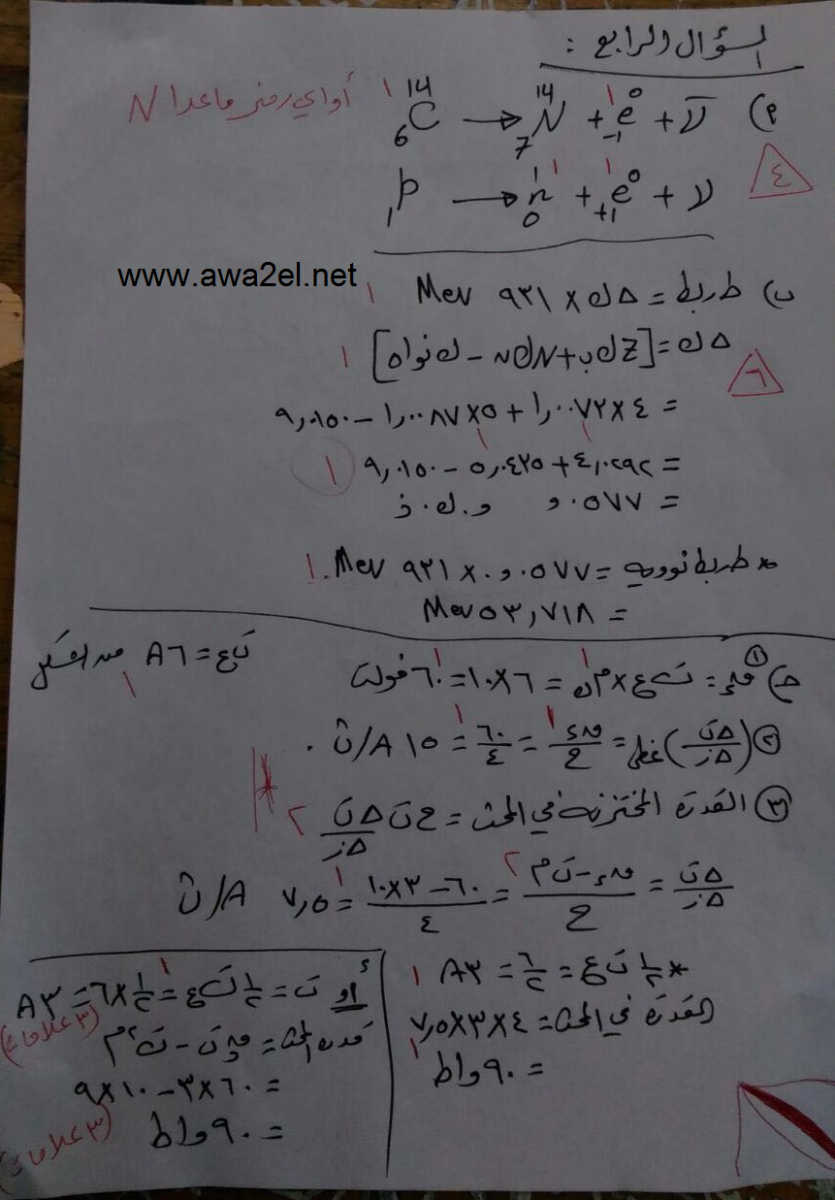 السؤال الرابع :
P) ¹⁴₆C → ¹⁴₇N + ⁰₋₁e + ν̄ ١ ١ أو أي رمز ما عدا N
¹₁p → ¹₀n + ⁰₊₁e + ν ١ ١ ٤
www.awa2el.net
ب) ط ربط = Δك × ٩٣١ Mev ١
Δك = [Z ك ب + N ك ن - ك نواة] ١ ٦
= ٤ × ١,٠٠٧٢ + ٥ × ١,٠٠٨٧ - ٩,٠١٥٠
= ٤,٠٢٩٢ + ٥,٠٤٢٥ - ٩,٠١٥٠ ١
= ٠٥٧٧ و. و.ك.ذ
* ط ربط نووية = ٠٥٧٧ و٠ × ٩٣١ Mev ١
= ٥٣,٧١٨ Mev
ت ع = ٦ A من الشكل ١
ج) ① قد = ت ع × م = ٦ × ١٠ = ٦٠ فولت ١ ١
② (Δت/Δز) عظمى = قد/ح = ٦٠/٤ = ١٥ A/ث ١ ١
③ القدرة المختزنة في المحث = ح ت Δت/Δز ٢
Δت/Δز = (قد - ت م)/ح = (٦٠ - ٣ × ١٠)/٤ = ٧,٥ A/ث ٢ ١
* ١/٢ ت ع = ٦/٢ = ٣ A ١
القدرة في المحث = ٤ × ٣ × ٧,٥
= ٩٠ واط ١
أو ت = ١/٢ ت ع = ١/٢ × ٦ = ٣ A ١
قدرة المحث = قد ت - ت² م (٣ علامات)
= ٦٠ × ٣ - ١٠ × ٩
= ٩٠ واط (٣ علامات)